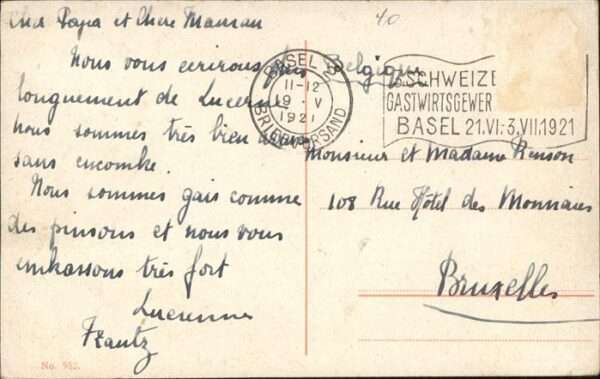 Cher Papa et Chere Maman
Nous vous ecrirons plus
longuement de Lucerne
nous sommes très bien
sans encombre.
Nous sommes gais comme
des pinsons et nous vous
embrassons très fort
Lucienne
Frantz
No. 952.
40
BASEL 2
11-12
9 · V
1921
BRIEFVERSAND
SCHWEIZE
GASTWIRTSGEWER
BASEL 21.VI.-3.VII.1921
Belgique
Monsieur et Madame Renson
108 Rue Hôtel des Monnaies
Bruxelles